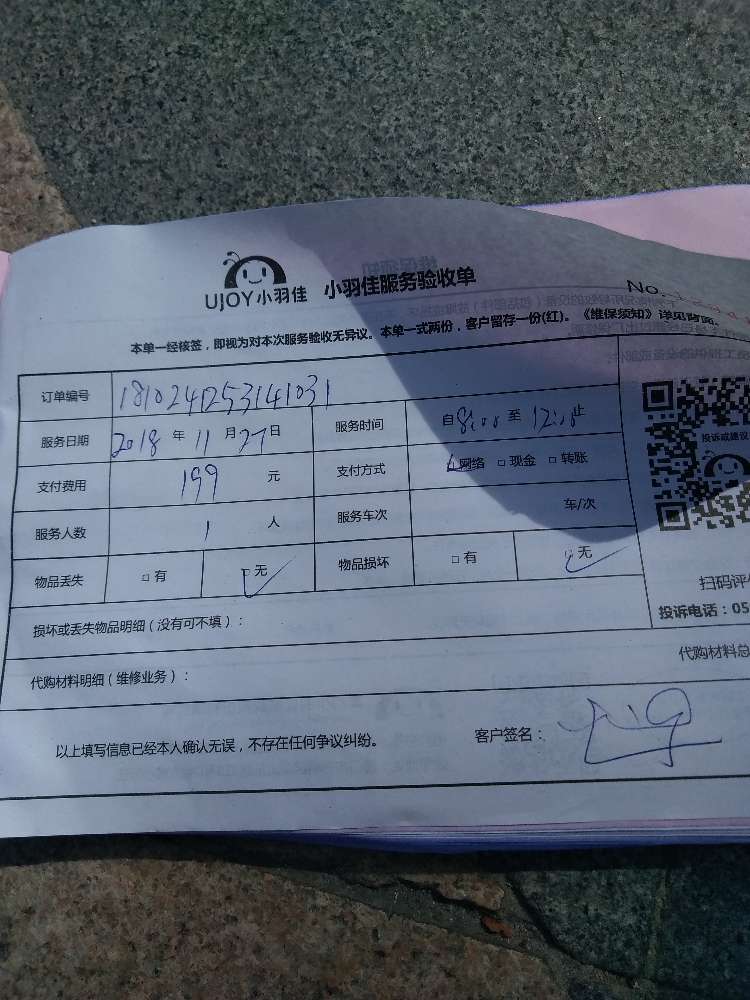 UJOY小羽佳 小羽佳服务验收单
No.
本单一经核签，即视为对本次服务验收无异议。本单一式两份，客户留存一份(红)。《维保须知》详见背面。
订单编号 181024025314 1031
服务日期 2018 年 11 月 27 日 服务时间 自 8:00 至 12:00 止
支付费用 199 元 支付方式 □网络 □现金 □转账
服务人数 1 人 服务车次 车/次
物品丢失 □有 □无 物品损坏 □有 □无
投诉或建议
扫码评
投诉电话：05
损坏或丢失物品明细（没有可不填）：
代购材料明细（维修业务）： 代购材料总
以上填写信息已经本人确认无误，不存在任何争议纠纷。 客户签名：